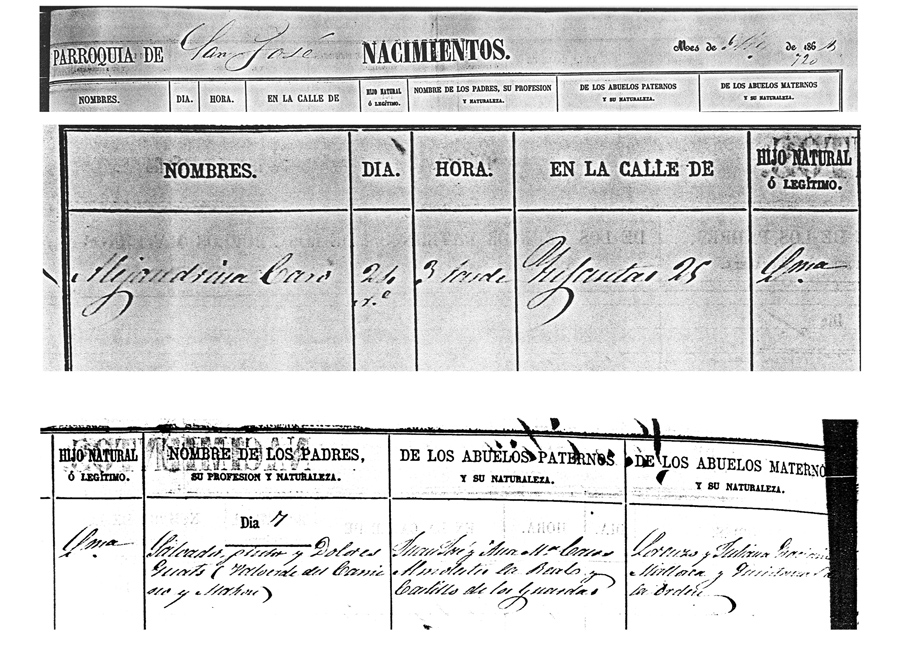 PARROQUIA DE San José NACIMIENTOS. Mes de de 186
NOMBRES. DIA. HORA. EN LA CALLE DE HIJO NATURAL Ó LEGÍTIMO. NOMBRE DE LOS PADRES, SU PROFESION Y NATURALEZA. DE LOS ABUELOS PATERNOS Y SU NATURALEZA. DE LOS ABUELOS MATERNOS Y SU NATURALEZA.
NOMBRES. DIA. HORA. EN LA CALLE DE HIJO NATURAL
Ó LEGÍTIMO.
Alejandrina Caro 3 tarde 25 Lma
HIJO NATURAL NOMBRE DE LOS PADRES, DE LOS ABUELOS PATERNOS DE LOS ABUELOS MATERNO
Ó LEGÍTIMO. SU PROFESION Y NATURALEZA. Y SU NATURALEZA. Y SU NATURALEZA.
Dia 7
Lma Salvador, y Dolores Juan José y Ana Mª Lorenzo y Juliana
Valverde del Cami la Real y y
no y Mahon Castillo de las Guardas la Orden